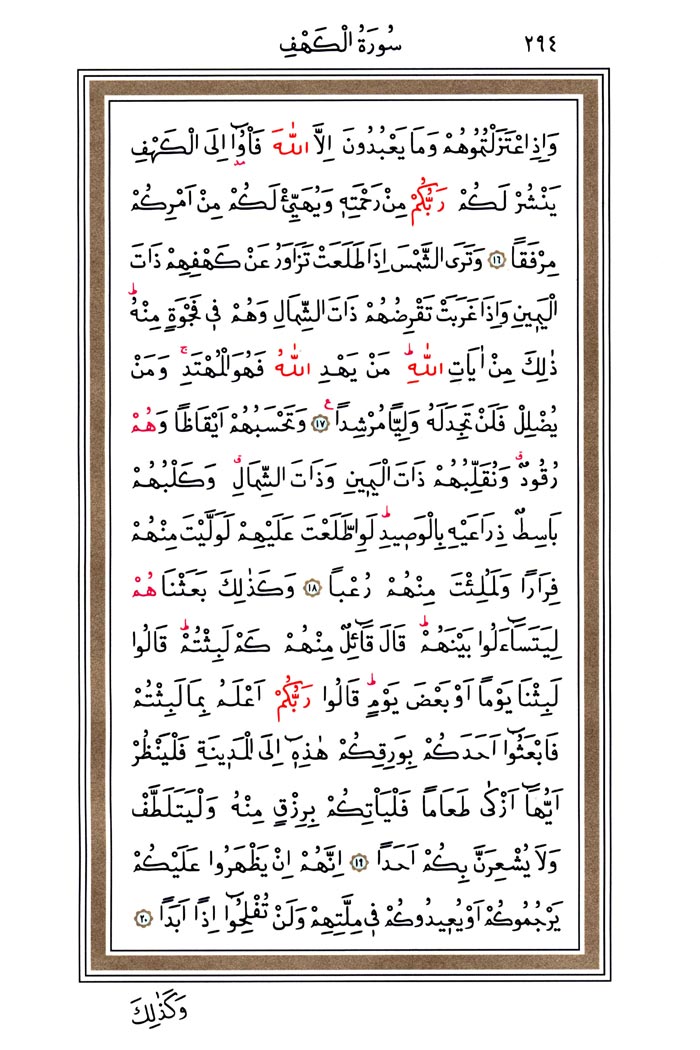 سُورَةُ الْكَهْفِ ٢٩٤
وَاِذِ اعْتَزَلْتُمُوهُمْ وَمَا يَعْبُدُونَ اِلَّا اللّٰهَ فَأْوُٓا اِلَى الْكَهْفِ
يَنْشُرْ لَكُمْ رَبُّكُمْ مِنْ رَحْمَتِهٖ وَيُهَيِّئْ لَكُمْ مِنْ اَمْرِكُمْ
مِرْفَقًا ﴿١٦﴾ وَتَرَى الشَّمْسَ اِذَا طَلَعَتْ تَزَاوَرُ عَنْ كَهْفِهِمْ ذَاتَ
الْيَمٖينِ وَاِذَا غَرَبَتْ تَقْرِضُهُمْ ذَاتَ الشِّمَالِ وَهُمْ فٖي فَجْوَةٍ مِنْهُؕ
ذٰلِكَ مِنْ اٰيَاتِ اللّٰهِؕ مَنْ يَهْدِ اللّٰهُ فَهُوَ الْمُهْتَدِۚ وَمَنْ
يُضْلِلْ فَلَنْ تَجِدَ لَهُ وَلِيًّا مُرْشِدًا ﴿١٧﴾ع وَتَحْسَبُهُمْ اَيْقَاظًا وَهُمْ
رُقُودٌۗ وَنُقَلِّبُهُمْ ذَاتَ الْيَمٖينِ وَذَاتَ الشِّمَالِۗ وَكَلْبُهُمْ
بَاسِطٌ ذِرَاعَيْهِ بِالْوَصٖيدِؕ لَوِ اطَّلَعْتَ عَلَيْهِمْ لَوَلَّيْتَ مِنْهُمْ
فِرَارًا وَلَمُلِئْتَ مِنْهُمْ رُعْبًا ﴿١٨﴾ وَكَذٰلِكَ بَعَثْنَاهُمْ
لِيَتَسَٓاءَلُوا بَيْنَهُمْؕ قَالَ قَٓائِلٌ مِنْهُمْ كَمْ لَبِثْتُمْؕ قَالُوا
لَبِثْنَا يَوْمًا اَوْ بَعْضَ يَوْمٍؕ قَالُوا رَبُّكُمْ اَعْلَمُ بِمَا لَبِثْتُمْ
فَابْعَثُٓوا اَحَدَكُمْ بِوَرِقِكُمْ هٰذِهٖٓ اِلَى الْمَدٖينَةِ فَلْيَنْظُرْ
اَيُّهَٓا اَزْكٰى طَعَامًا فَلْيَأْتِكُمْ بِرِزْقٍ مِنْهُ وَلْيَتَلَطَّفْ
وَلَا يُشْعِرَنَّ بِكُمْ اَحَدًا ﴿١٩﴾ اِنَّهُمْ اِنْ يَظْهَرُوا عَلَيْكُمْ
يَرْجُمُوكُمْ اَوْ يُعٖيدُوكُمْ فٖي مِلَّتِهِمْ وَلَنْ تُفْلِحُٓوا اِذًا اَبَدًا ﴿٢٠﴾
وَكَذٰلِكَ